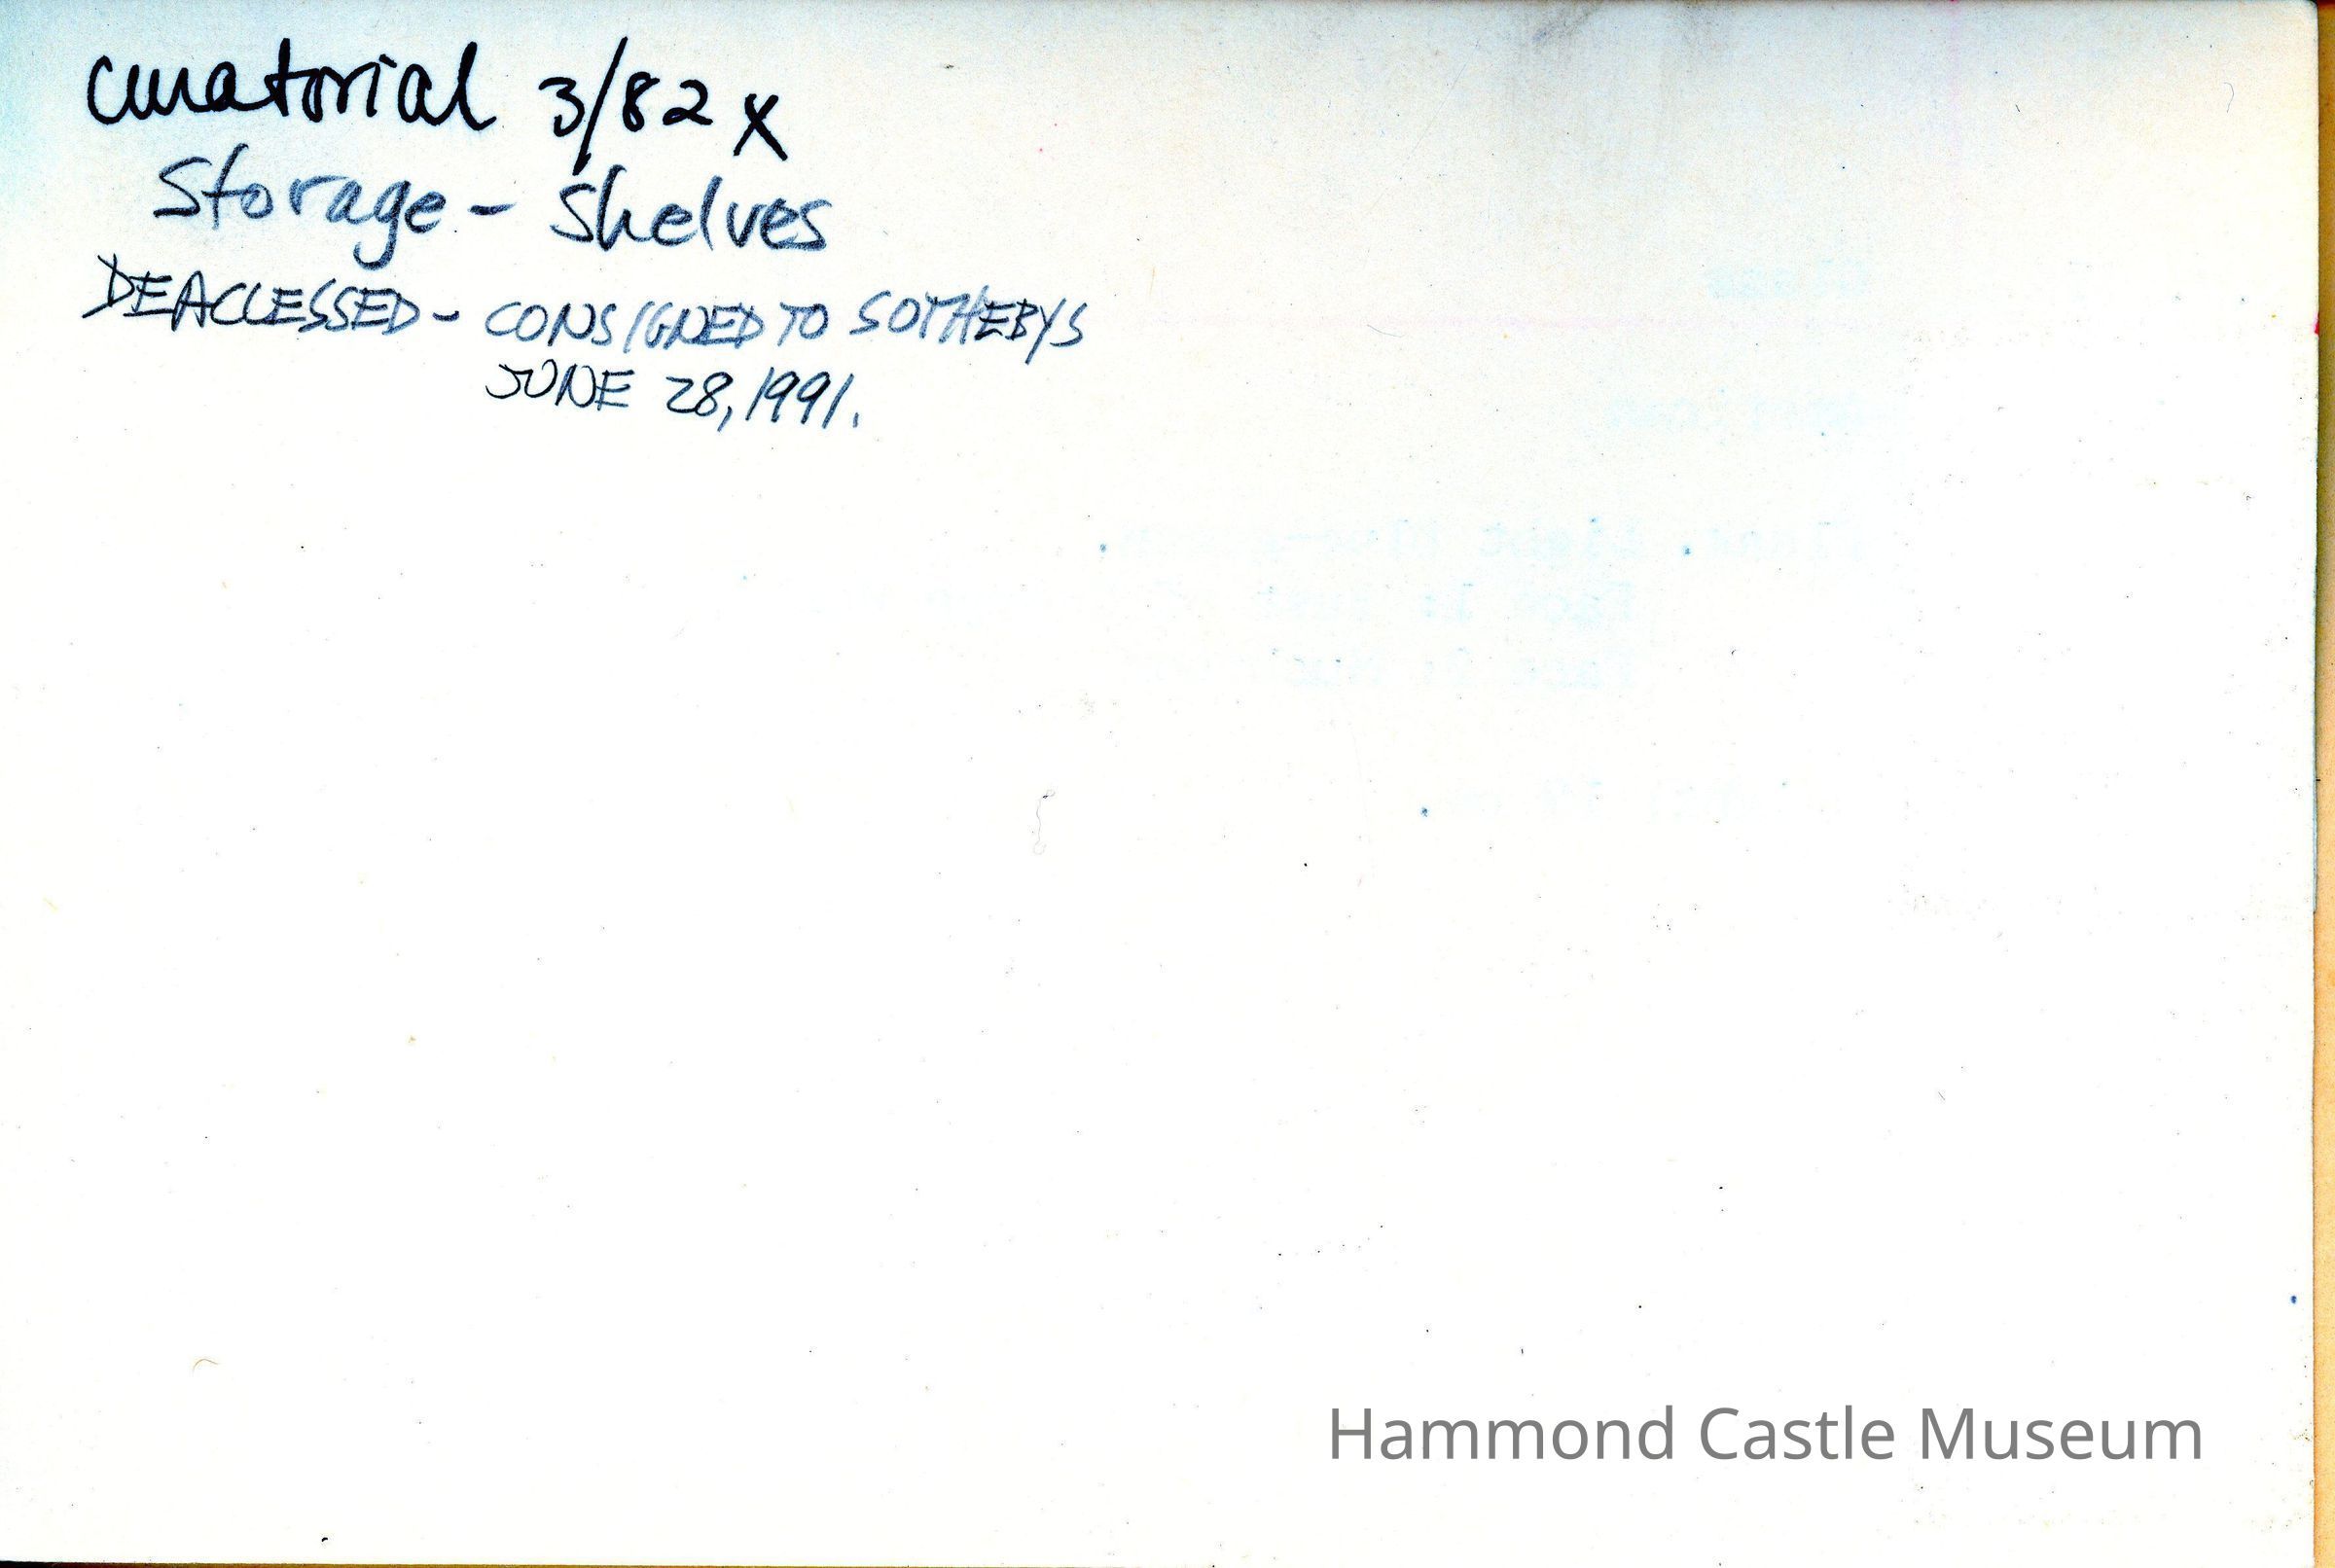 curatorial 3/82 x
Storage - Shelves
DEACCESSED - CONSIGNED TO SOTHEBYS
JUNE 28, 1991.
Hammond Castle Museum